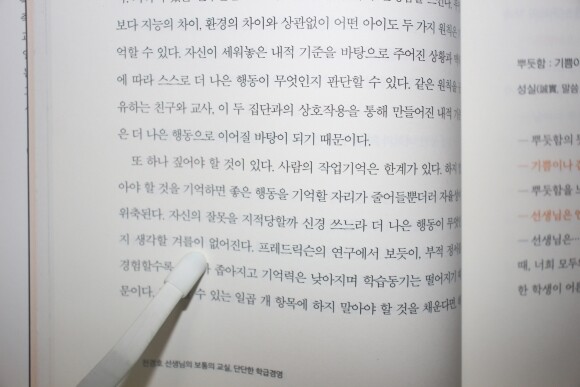 보다 지능의 차이, 환경의 차이와 상관없이 어떤 아이도 두 가지 원칙은
억할 수 있다. 자신이 세워놓은 내적 기준을 바탕으로 주어진 상황과
에 따라 스스로 더 나은 행동이 무엇인지 판단할 수 있다. 같은 원칙을
유하는 친구와 교사, 이 두 집단과의 상호작용을 통해 만들어진 내적
은 더 나은 행동으로 이어질 바탕이 되기 때문이다.
또 하나 짚어야 할 것이 있다. 사람의 작업기억은 한계가 있다. 하지
아야 할 것을 기억하면 좋은 행동을 기억할 자리가 줄어들뿐더러
위축된다. 자신의 잘못을 지적당할까 신경 쓰느라 더 나은 행동이
지 생각할 겨를이 없어진다. 프레드릭슨의 연구에서 보듯이, 부적
경험할수록 좁아지고 기억력은 낮아지며 학습동기는 떨어지기
문이다. 수 있는 일곱 개 항목에 하지 말아야 할 것을 채운다면
선생님의 보통의 교실, 단단한 학급경영
뿌듯함 : 기쁨이
성실(誠實, 말씀
— 뿌듯함의
— 기쁨이나
— 뿌듯함을
— 선생님은
— 선생님은
때, 너희 모두
한 학생이 어른